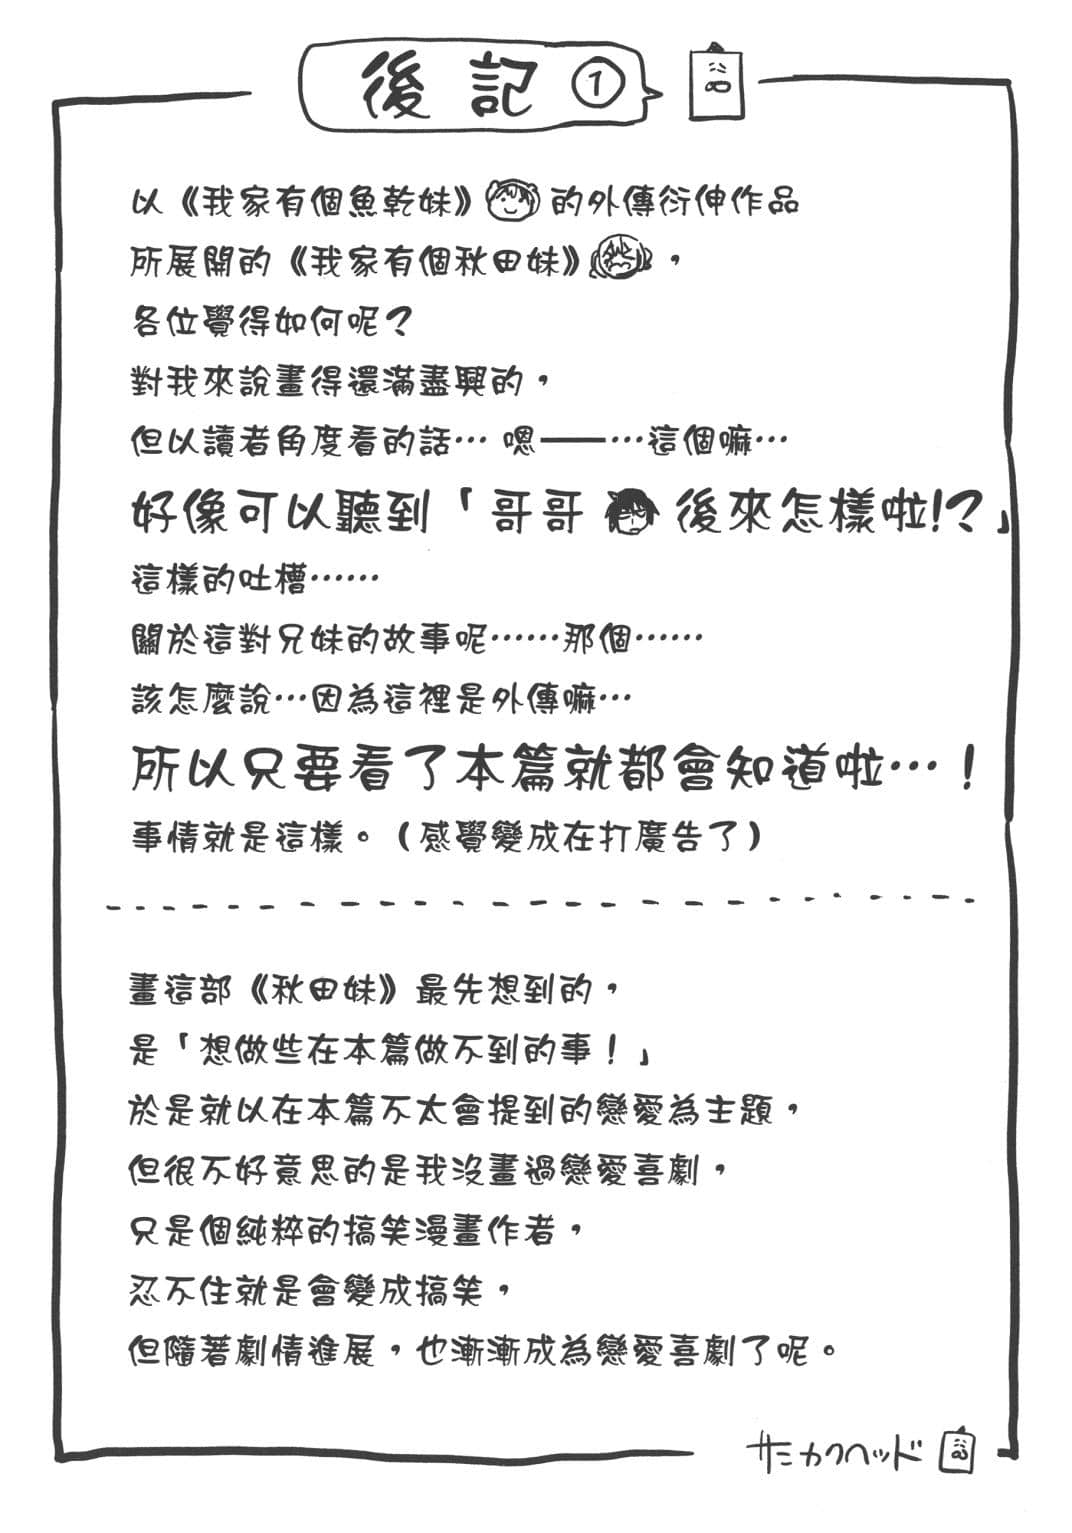 後記①
以《我家有個魚乾妹》的外傳衍伸作品
所展開的《我家有個秋田妹》，
各位覺得如何呢？
對我來說畫得還滿盡興的，
但以讀者角度看的話… 嗯——…這個嘛…
好像可以聽到「哥哥後來怎樣啦!?」
這樣的吐槽……
關於這對兄妹的故事呢……那個……
該怎麼說…因為這裡是外傳嘛…
所以只要看了本篇就都會知道啦…！
事情就是這樣。（感覺變成在打廣告了）
畫這部《秋田妹》最先想到的，
是「想做些在本篇做不到的事！」
於是就以在本篇不太會提到的戀愛為主題，
但很不好意思的是我沒畫過戀愛喜劇，
只是個純粹的搞笑漫畫作者，
忍不住就是會變成搞笑，
但隨著劇情進展，也漸漸成為戀愛喜劇了呢。
サンカクヘッド